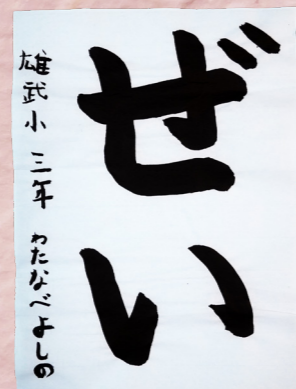 ぜい
雄武小 三年 わたなべよしの